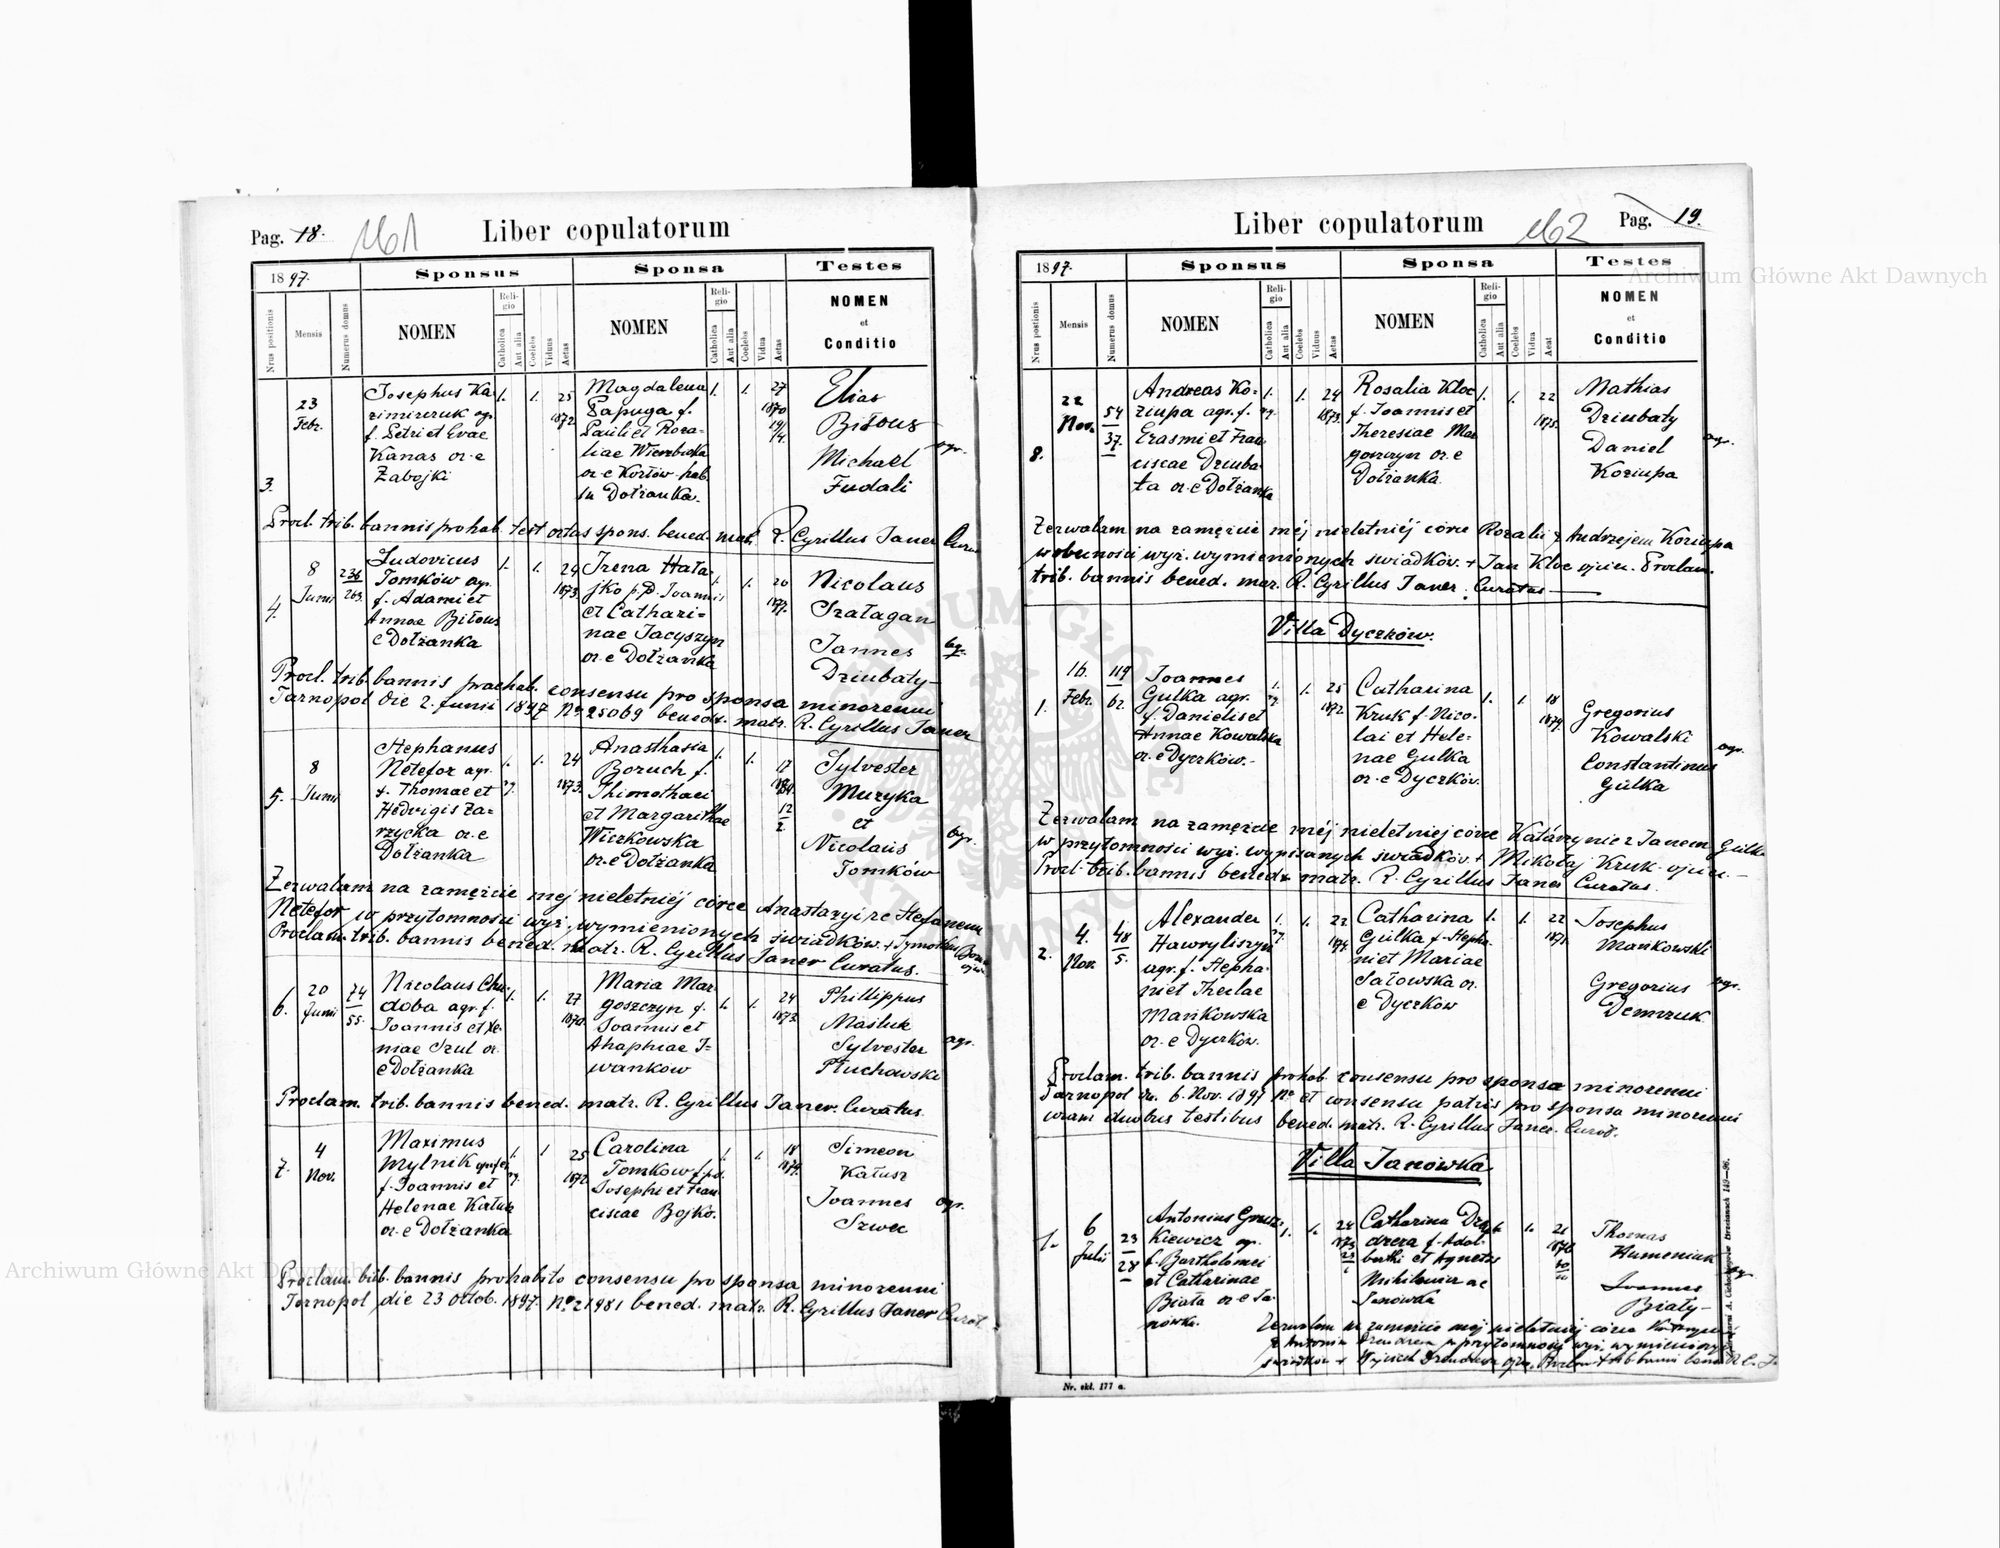 Pag. 18.
161
Liber copulatorum
1897.
Sponsus
Sponsa
Testes
Nrus positionis
Mensis
Numerus domus
NOMEN
Religio
Catholica
Aut alia
Coelebs
Viduus
Aetas
NOMEN
Religio
Catholica
Aut alia
Coelebs
Vidua
Aetas
NOMEN
et
Conditio
3.
23
Febr.
Josephus Ka-
zimirczuk agr.
f. Petri et Evae
Kanas or. e
Zabojki
1.
1.
25
1872
Magdalena
Papuga f.
Pauli et Roza-
liae Wierzbicka
or. e Kozłów hab.
in Dołżanka.
1.
1.
27
1870
Elias
Bitous
Michael
Fudali
agr.
Procl. trib. bannis prohab. test ortus spons. bened. matr. R. Cyrillus Janer
4.
8
Junii
236
263.
Ludovicus
Tomków agr.
f. Adami et
Annae Bitous
e Dołżanka
1.
1.
24
1873.
Irena Hała-
jko p. D. Joannis
et Cathari-
nae Jacyszyn
or. e Dołżanka
1.
1.
20
1877.
Nicolaus
Szałagan
Joannes
Dziubaty
agr.
Procl. trib. bannis praehab. consensu pro sponsa minorenni
Tarnopol die 2. Junii 1897 No 25069 bened. matr. R. Cyrillus Janer
5.
8
Junii
Stephanus
Netefor agr.
f. Thomae et
Hedvigis Za-
rzycka or. e
Dołżanka
1.
1.
24
1873.
Anasthasia
Boruch f.
Thimothaei
et Margarithae
Wiczkowska
or. e Dołżanka
1.
1.
17
12
2.
Sylvester
Muzyka
et
Nicolaus
Tomków
agr.
Zezwalam na zamęźcie mej nieletniéj córce Anastazyi ze Stefanem
Netefor w przytomności wyż. wymienionych świadków. + Tymotheu
Proclam. trib. bannis bened. matr. R. Cyrillus Janer Curatus.
6.
20
Junii
74
55.
Nicolaus Chu-
doba agr. f.
Joannis et Xe-
niae Szul or.
e Dołżanka
1.
1.
27
1870.
Maria Mar-
goszczyn f.
Joannis et
Ahaphiae I-
wankow
1.
1.
24
1873.
Phillippus
Maśluk
Sylvester
Płuchowski
agr.
Proclam. trib. bannis bened. matr. R. Cyrillus Janer. Curatus.
7.
4
Nov.
Maximus
Mylnik
f. Joannis et
Helenae Katusz
or. e Dołżanka
1.
1
25
1872.
Carolina
Tomkow f. pd.
Josephi et Fran-
ciscae Bojko.
1.
1.
18
1879.
Simeon
Katusz
Joannes
Szwec
agr.
Proclam. trib. bannis prohabito consensu pro sponsa minorenni
Tarnopol die 23 Octob. 1897. No 21981 bened. matr. R. Cyrillus Janer Curat.
Liber copulatorum
162
Pag. 19.
1897.
Sponsus
Sponsa
Testes
Nrus postionis
Mensis
Numerus domus
NOMEN
Religio
Catholica
Aut alia
Coelebs
Viduus
Aetas
NOMEN
Religio
Catholica
Aut alia
Coelebs
Vidua
Aeat
NOMEN
et
Conditio
8.
22
Nov.
54
37.
Andreas Ko-
ziupa agr. f.
Erasmi et Fran-
ciscae Dziuba-
ta or. e Dołżanka
1.
1.
24
1873.
Rosalia Kloc
f. Joannis et
Theresiae Mar-
goszczyn or. e
Dołżanka.
1.
1.
22
1875.
Mathias
Dziubaty
Daniel
Koziupa
agr.
Zezwalam na zamęźcie méj nieletniéj córce Rozalii z Andrzejem Koziupa
w obecności wyż. wymienionych świadków. + Jan Kloc ojciec. Proclam.
trib. bannis bened. mar. R. Cyrillus Janer. Curatus
Villa Dyczków.
1.
16.
Febr.
119
62.
Joannes
Gulka agr.
f. Danielis et
Annae Kowalska
or. e Dyczków.
1.
1.
25
1872.
Catharina
Kruk f. Nico-
lai et Hele-
nae Gulka
or. e Dyczków.
1.
1.
18
1879.
Gregorius
Kowalski
Constantinus
Gulka
agr.
Zezwalam na zamęźcie méj nieletniej córce Katarzynie z Janem Gulka
w przytomności wyż. wypisanych świadków. + Mikołaj Kruk ojciec
Procl. trib. bannis bened. matr. R. Cyrillus Janer Curatus.
2.
4.
Nov.
48
5.
Alexander
Hawryliszyn
agr. f. Stepha-
ni et Theclae
Mańkowska
or. e Dyczków.
1.
1.
22.
Catharina
Gulka f. Stepha-
ni et Mariae
Sałowska or.
e Dyczków
1.
1.
22
Josephus
Mańkowski
Gregorius
Demczuk
agr.
Proclam. trib. bannis prohab. consensu pro sponsa minorenni
Tarnopol 6. Nov. 1897 No et consensu patris pro sponsa minorenni
coram duobus testibus bened. matr. R. Cyrillus Janer. Curat.
Villa Janówka
1.
6
Julii
23
28
Antonius Grusz-
kiewicz agr.
f. Bartholomei
et Catharinae
Biała or. e Ja-
nówka.
1.
1.
24
Catharina
f. Adal-
berthi et Agnetis
Janówka
1.
21
1876
Thomas
Humeniuk
Joannes
Biały
agr.
Nr. skł. 177 a.
Archiwum Główne Akt Dawnych
Archiwum Główne Akt Dawnych